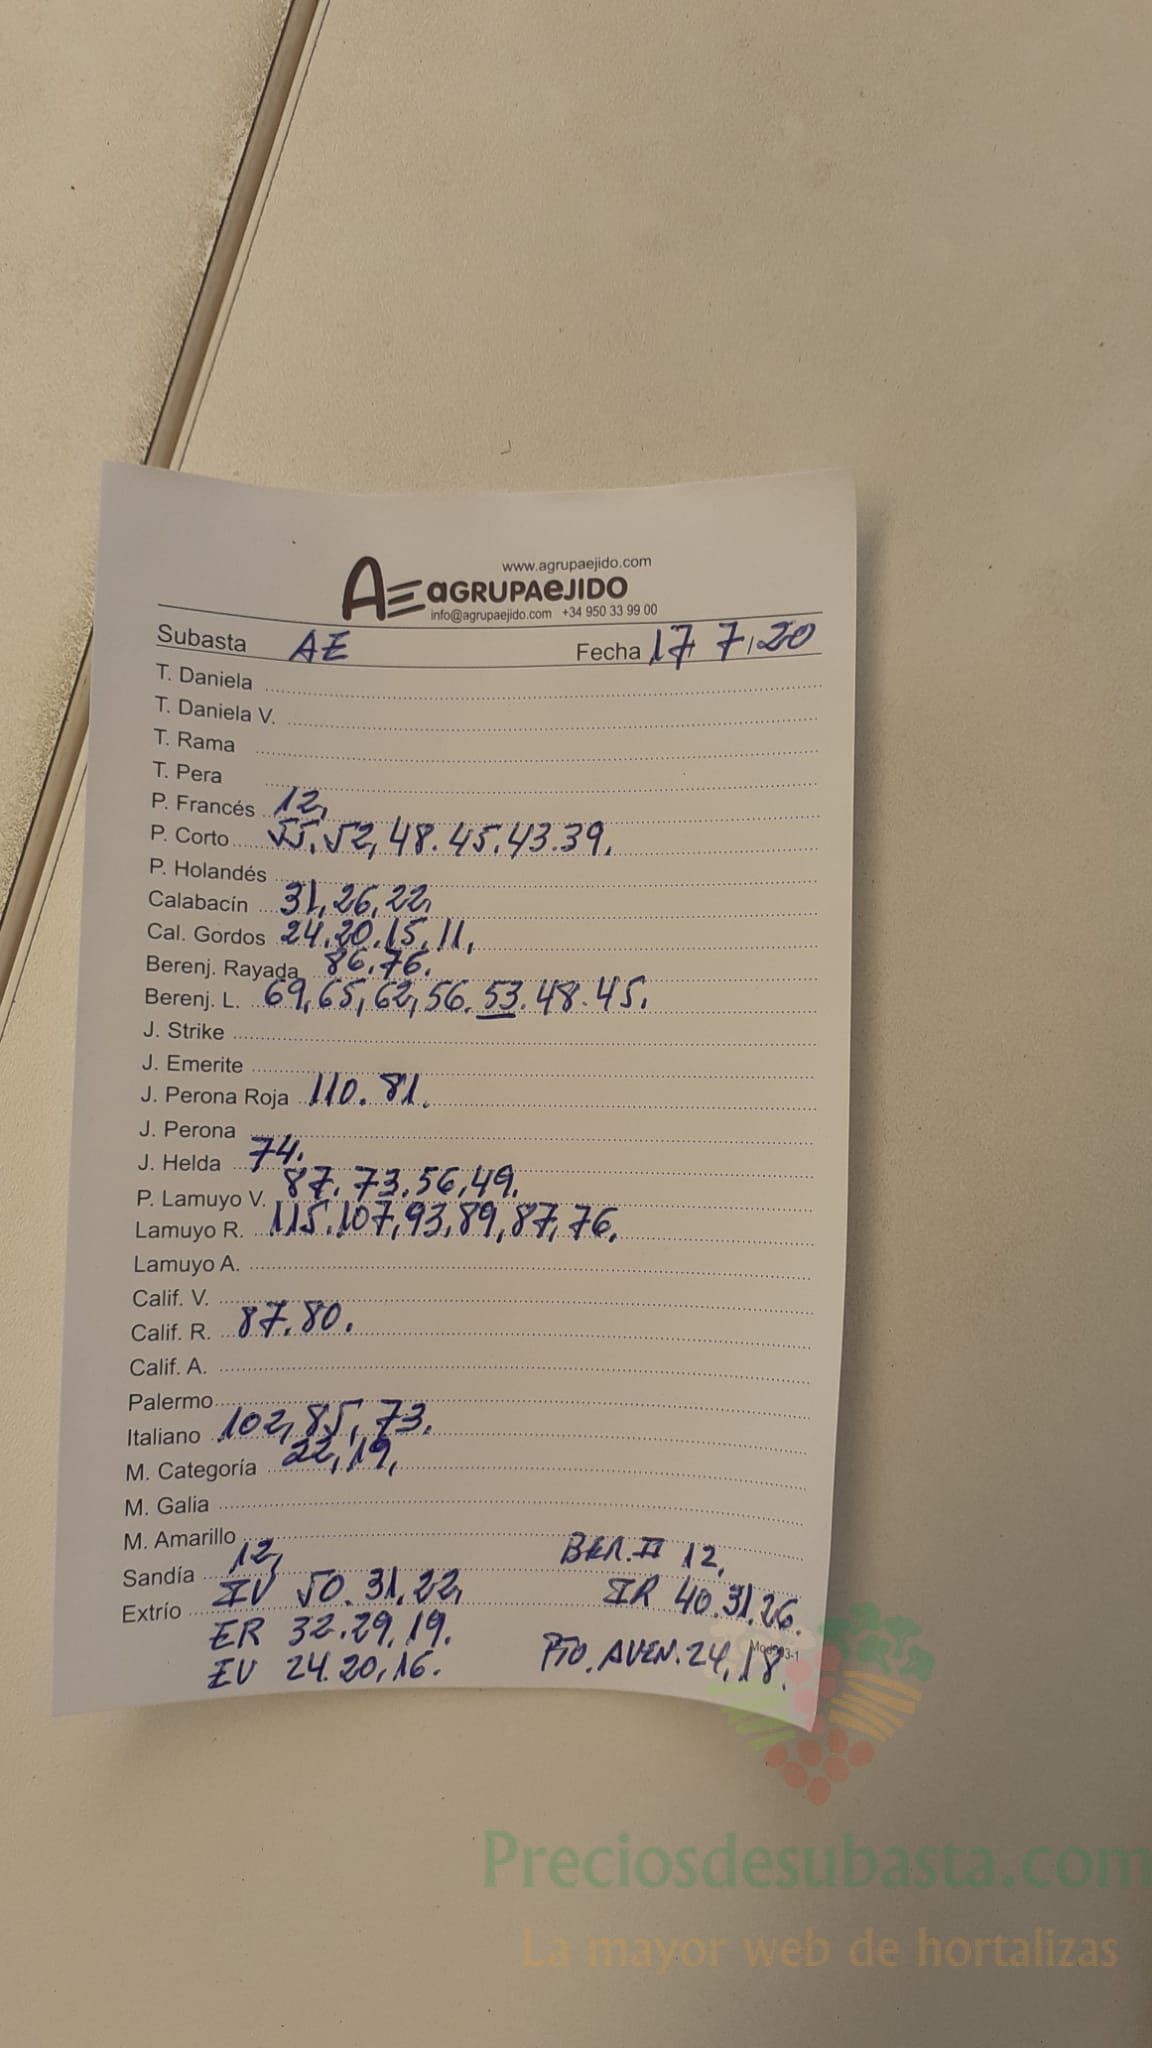 www.agrupaejido.com
AE AGRUPAEJIDO
info@agrupaejido.com +34 950 33 99 00
Subasta AE Fecha 17 7, 20
T. Daniela
T. Daniela V.
T. Rama
T. Pera
P. Francés 12,
P. Corto 55. 52, 48. 45. 43. 39.
P. Holandés
Calabacín 31, 26, 22,
Cal. Gordos 24. 20. 15, 11,
Berenj. Rayada 86. 76.
Berenj. L. 69, 65, 62, 56. 53. 48. 45.
J. Strike
J. Emerite
J. Perona Roja 110. 81.
J. Perona
J. Helda 74.
P. Lamuyo V. 87. 73. 56, 49.
Lamuyo R. 115. 107, 93, 89, 87, 76.
Lamuyo A.
Calif. V.
Calif. R. 87. 80.
Calif. A.
Palermo
Italiano 102, 85, 73.
M. Categoría 22, 19,
M. Galia
M. Amarillo
Sandía 12, BER. II 12,
Extrío IV 50. 31, 22, IR 40. 31, 26.
ER 32. 29, 19.
EV 24. 20, 16. PTO. AVEN. 24, 18.
Preciosdesubasta.com
La mayor web de hortalizas